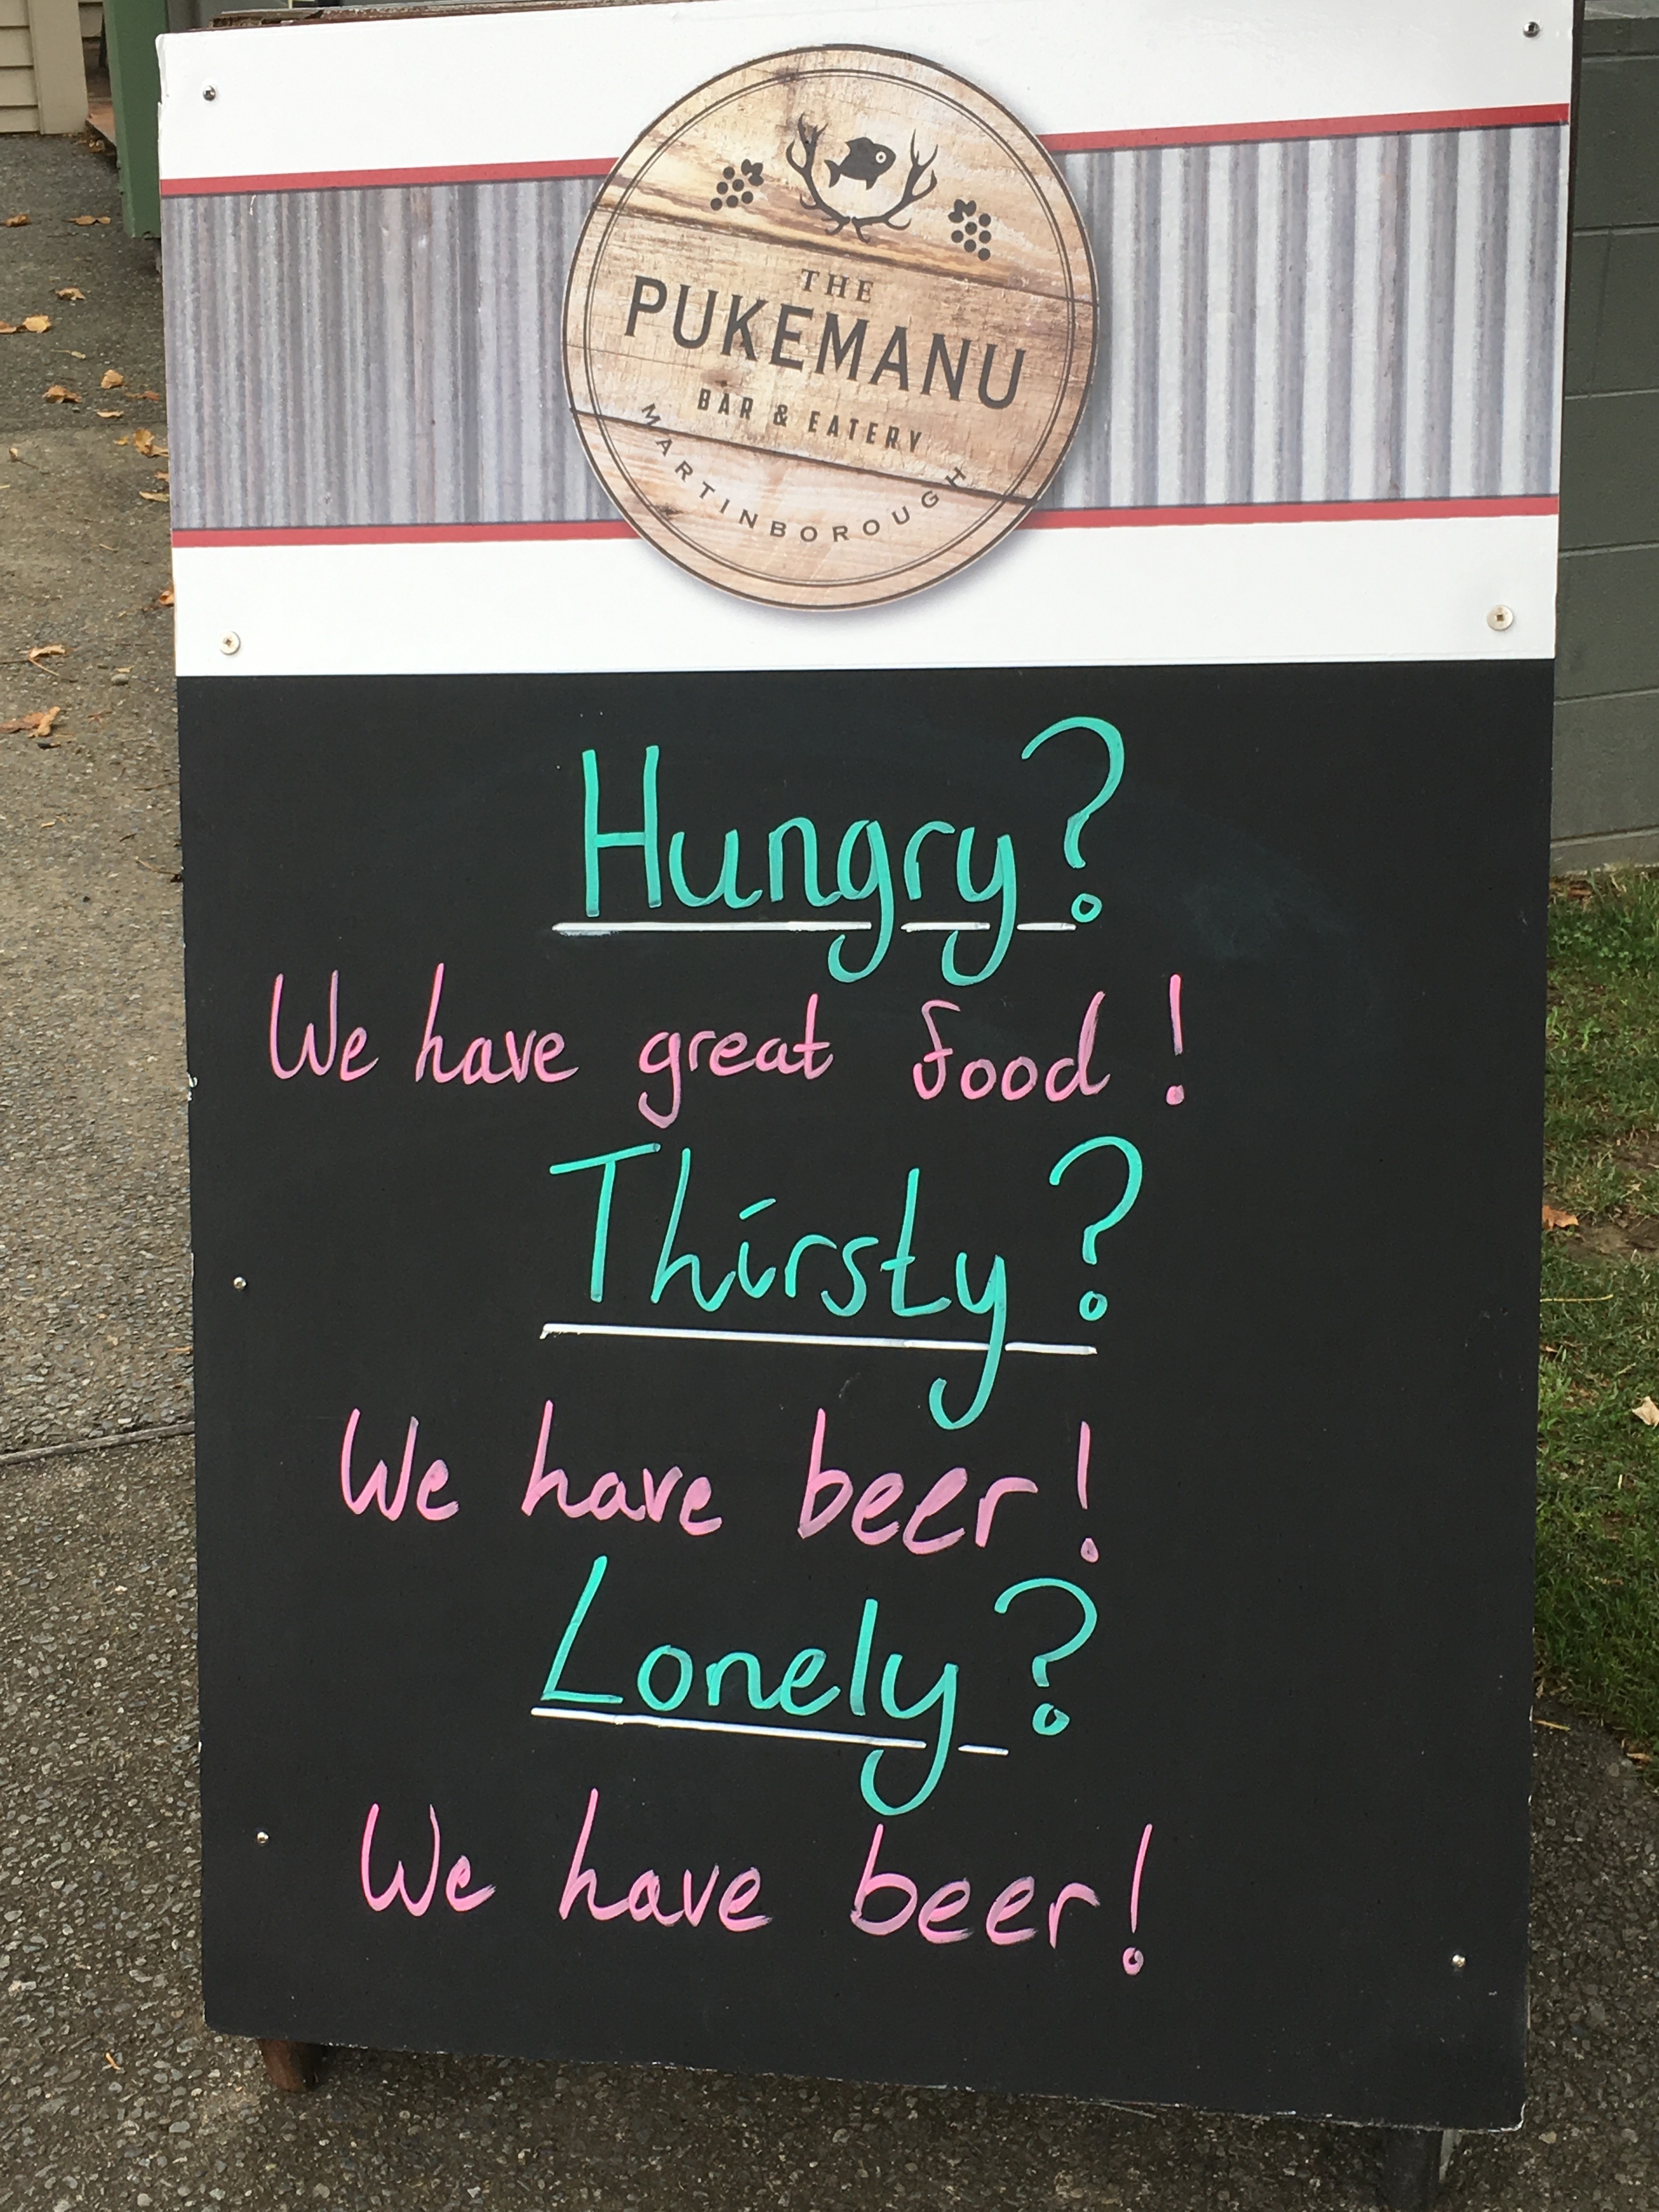 THE
PUKEMANU
BAR & EATERY
MARTINBOROUGH
Hungry?
We have great food!
Thirsty?
We have beer!
Lonely?
We have beer!